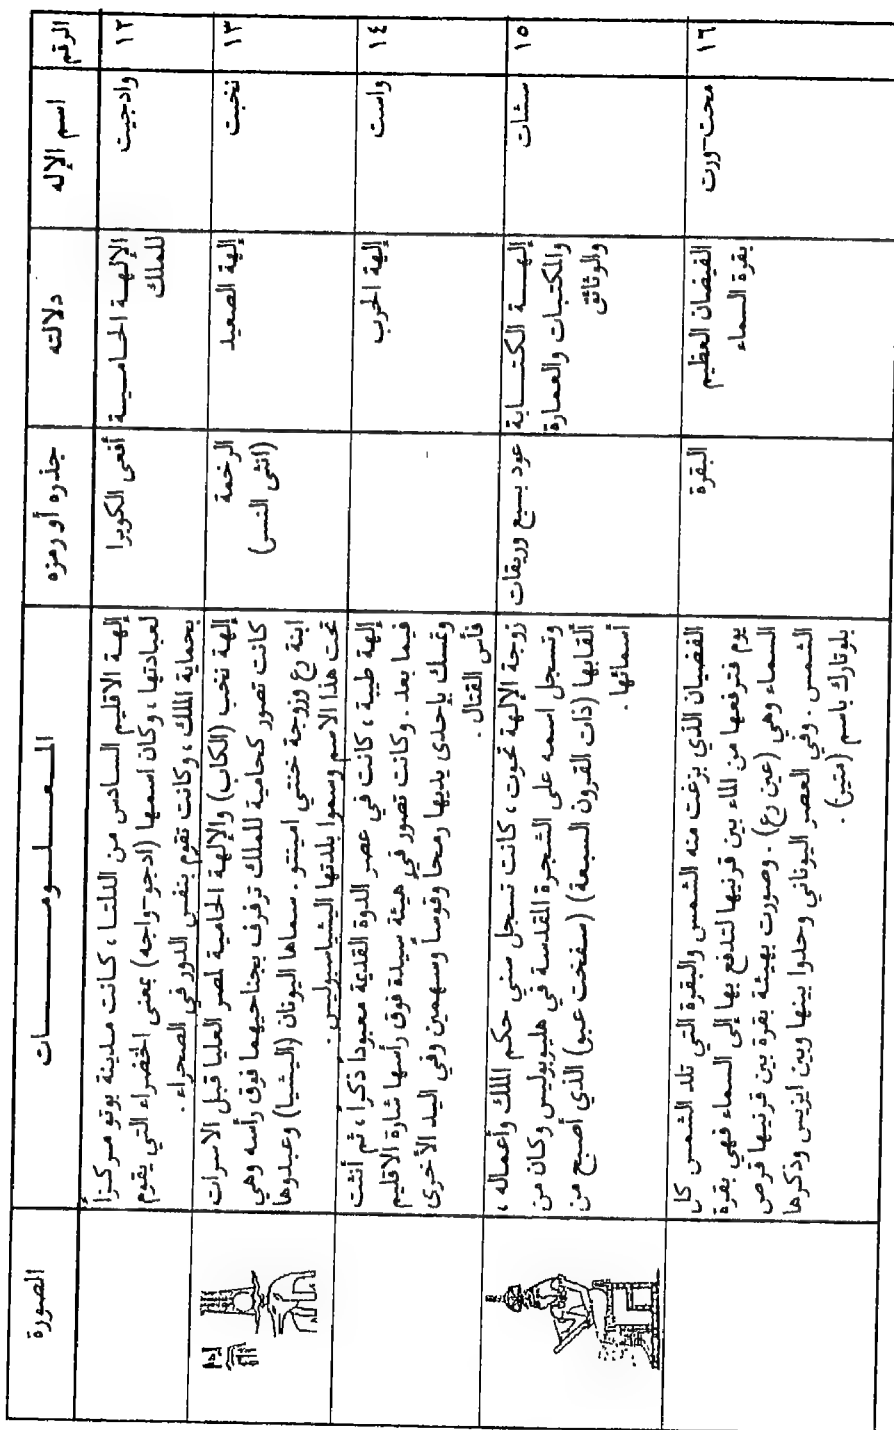 الرقم
اسم الإله
دلالته
جذره أو رمزه
المعلومات
الصورة
١٢
وادجيت
الإلهة الحامية
للملك
أفعى الكوبرا
إلهة الاقليم السادس من الدلتا، كانت مدينة بوتو مركزاً
لعبادتها، وكان اسمها (ادجو-واجه) بمعنى الخضراء التي يقوم
بحماية الملك، وكانت تقوم بنفس الدور في الصحراء.
١٣
نخبت
إلهة الصعيد
الرخمة
(انثى النسر)
إلهة نخب (الكاب) والإلهة الحامية لمصر العليا قبل الاسرات.
كانت تصور كحامية للملك ترفرف بجناحيهما فوق رأسه وهي
ابنة رع وزوجة خنتي امينتو. سماها اليونان (اليثيا) وعبدوها
تحت هذا الاسم وسموا بلدتها اليثياسبوليس.
١٤
واست
إلهة الحرب
إلهة طيبة، كانت في عصر الدوة القديمة معبوداً ذكراً، ثم أنثت
فيما بعد. وكانت تصور في هيئة سيدة فوق رأسها شارة الاقليم
وتمسك بإحدى يديها رمحا وقوسا وسهمين وفي اليد الأخرى
فأس القتال.
١٥
سشات
إلهة الكتابة
والمكتبات والعمارة
والوثائق
عود بسبع وريقات
زوجة الإلهة تحوت، كانت تسجل سني حكم الملك وأعماله،
وتسجل اسمه على الشجرة المقدسة في هليوبوليس وكان من
ألقابها (ذات القرون السبعة) (سفخت عبو) الذي أصبح من
أسمائها.
١٦
محت-ورت
الفيضان العظيم
بقرة السماء
البقرة
الفضيان الذي بزغت منه الشمس والبقرة التي تلد الشمس كل
يوم فترفعها من الماء بين قرنيها لتدفع بها إلى السماء فهي بقرة
السماء وهي (عين رع). وصورت بهيئة بقرة بين قرنيها قرص
الشمس. وفي العصر اليوناني وحدوا بينها وبين ايزيس وذكرها
بلوتارك باسم (متير).